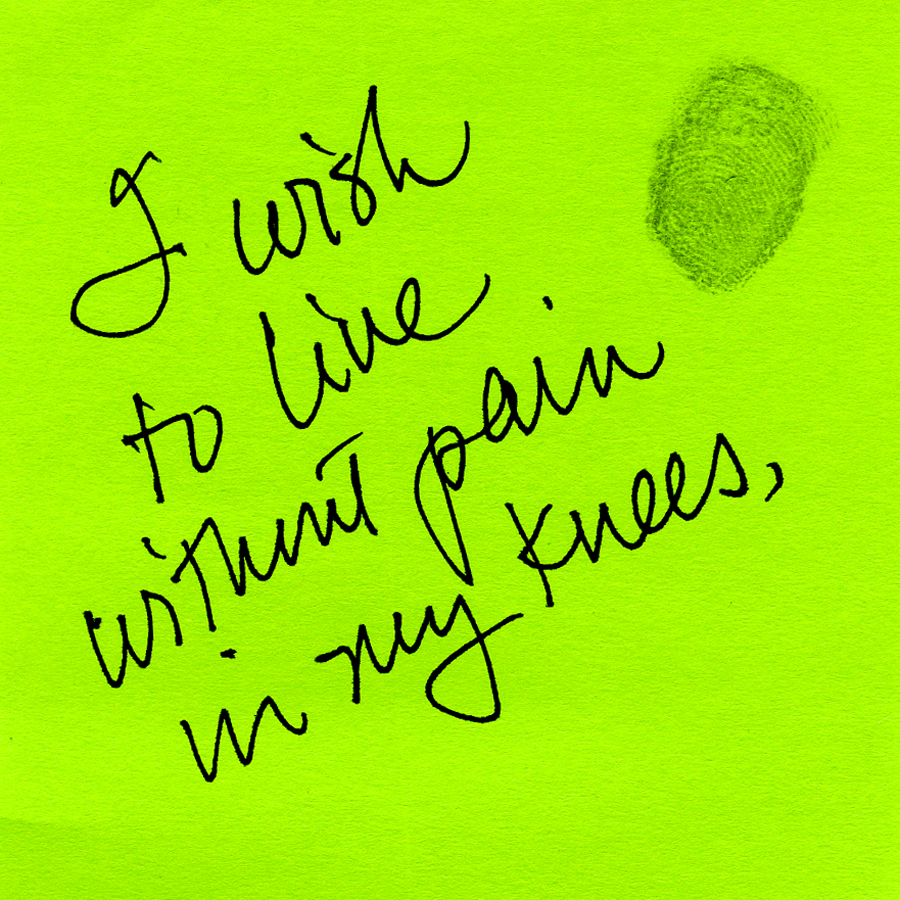 I wish
to live
without pain
in my knees,